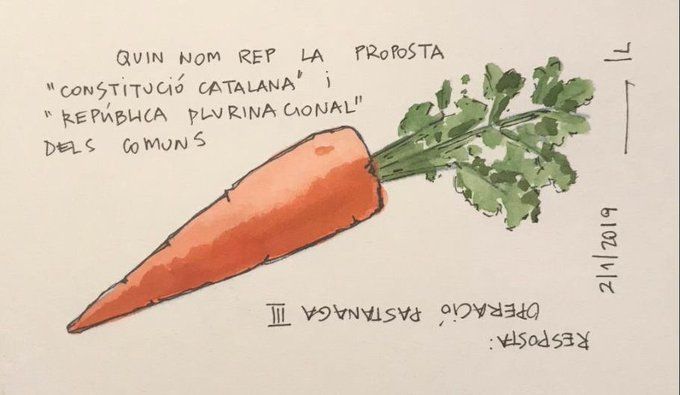 QUIN NOM REP LA PROPOSTA
"CONSTITUCIÓ CATALANA" i
"REPÚBLICA PLURINACIONAL"
DELS COMUNS
RESPOSTA:
OPERACIÓ PASTANAGA III
2/1/2019